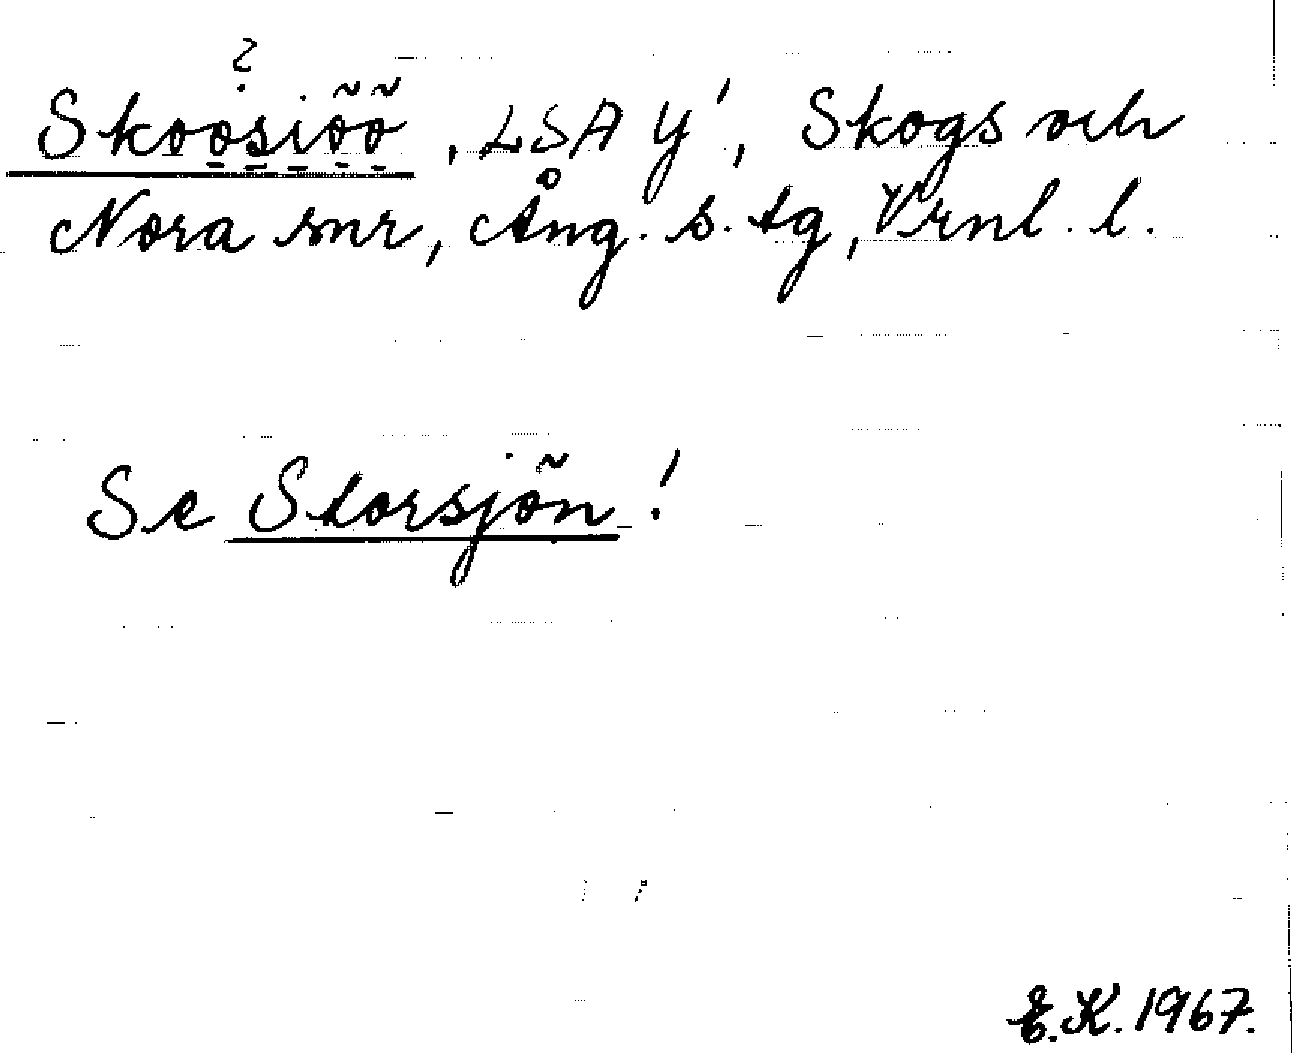 ?
Skoosiöö, LSA Y', Skogs och
Nora snr, Ång. s. tg, Vrnl. l.
Se Storsjön!
E.K. 1967.